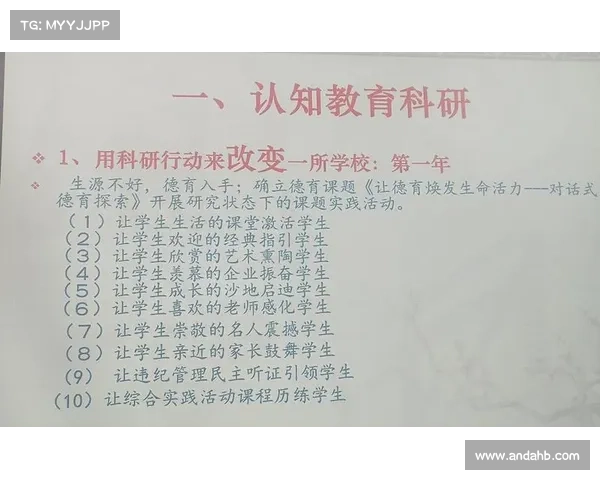 TG: MYYJJPP
一、认知教育科研
❖ 1、用科研行动来改变一所学校：第一年
❖ 生源不好，德育入手；确立德育课题《让德育焕发生命活力——对话式
德育探索》开展研究状态下的课题实践活动。
（1）让学生生活的课堂激活学生
（2）让学生欢迎的经典指引学生
（3）让学生欣赏的艺术熏陶学生
（4）让学生羡慕的企业振奋学生
（5）让学生成长的沙地启迪学生
（6）让学生喜欢的老师感化学生
（7）让学生崇敬的名人震撼学生
（8）让学生亲近的家长鼓舞学生
（9） 让违纪管理民主听证引领学生
（10）让综合实践活动课程历练学生
www.andahb.com